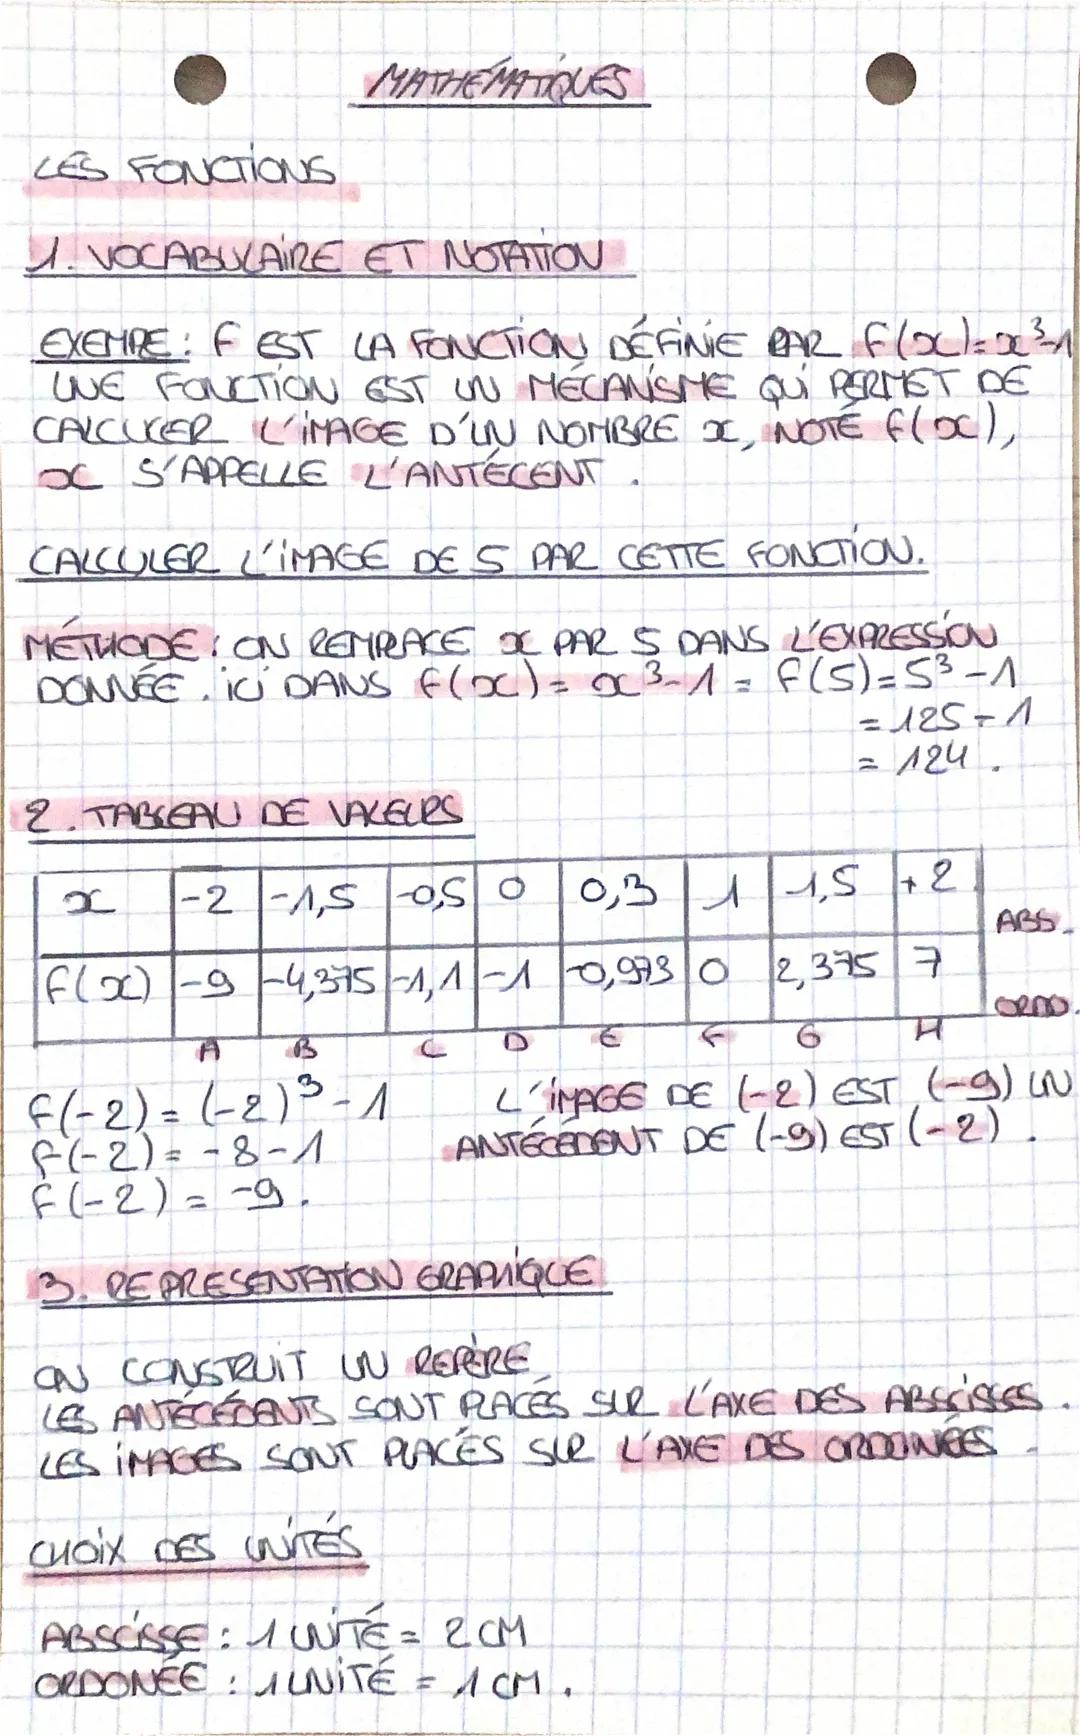 MATHÉMATIQUES
LES FONCTIONS
1. VOCABULAIRE ET NOTATION
EXEMPLE : F EST LA FONCTION DÉFINIE PAR f(x)=x³-1
UNE FONCTION EST UN MÉCANISME QUI PERMET DE
CALCULER L'IMAGE D'UN NOMBRE x, NOTÉ f(x),
x S'APPELLE L'ANTÉCENT.
CALCULER L'IMAGE DE 5 PAR CETTE FONCTION.
MÉTHODE : ON REMPLACE x PAR 5 DANS L'EXPRESSION
DONNÉE. ICI DANS f(x)= x³-1 = f(5)=5³-1
= 125-1
= 124.
2. TABLEAU DE VALEURS
x -2 -1,5 -0,5 0 0,3 1 1,5 +2 ABS.
f(x) -9 -4,375 -1,1 -1 -0,973 0 2,375 7 ORDO.
A B C D E F G H
f(-2)= (-2)³-1 L'IMAGE DE (-2) EST (-9) UN
f(-2)= -8-1 ANTÉCÉDENT DE (-9) EST (-2).
f(-2) = -9.
3. REPRESENTATION GRAPHIQUE
ON CONSTRUIT UN REPÈRE
LES ANTÉCÉDENTS SONT PLACÉS SUR L'AXE DES ABSCISSES.
LES IMAGES SONT PLACÉS SUR L'AXE DES ORDONNÉES.
CHOIX DES UNITÉS
ABSCISSE : 1 UNITÉ = 2 CM
ORDONÉE : 1 UNITÉ = 1 CM.